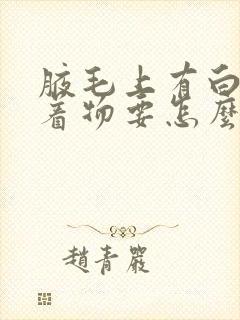 腋毛上有白
着物要怎麼
趙青嚴